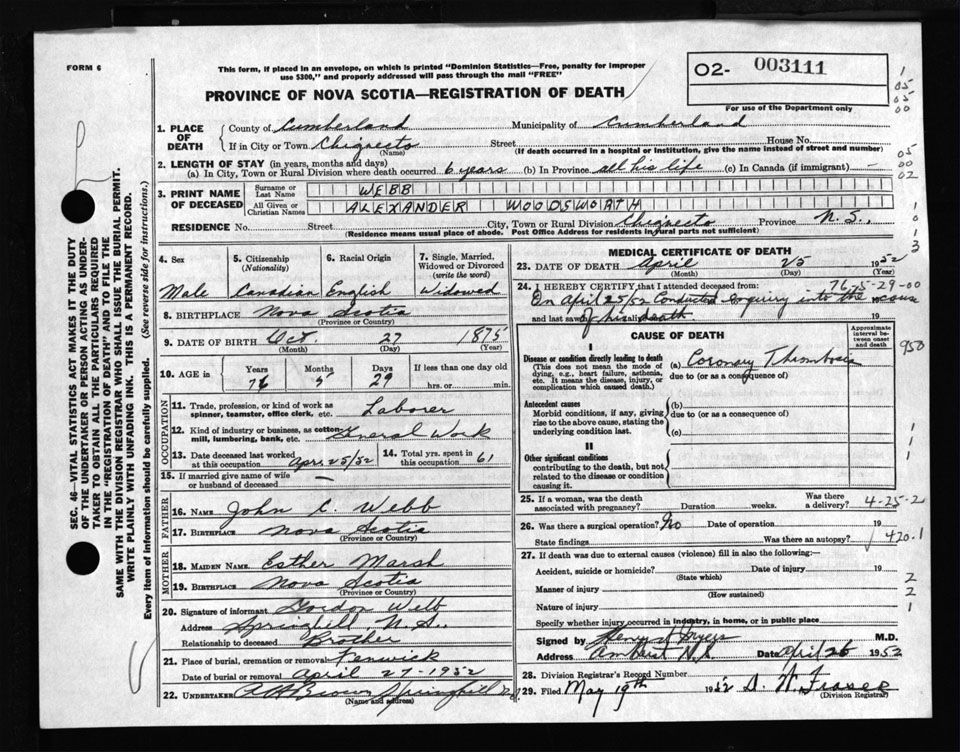 FORM 6
This form, if placed in an envelope, on which is printed "Dominion Statistics—Free, penalty for improper
use $300," and properly addressed will pass through the mail "FREE"
O2- 003111
For use of the Department only
PROVINCE OF NOVA SCOTIA—REGISTRATION OF DEATH
1. PLACE OF DEATH
County of Cumberland Municipality of Cumberland
If in City or Town Chignecto Street House No.
(Name) (If death occurred in a hospital or institution, give the name instead of street and number)
2. LENGTH OF STAY (in years, months and days)
(a) In City, Town or Rural Division where death occurred 6 years (b) In Province all his life (c) In Canada (if immigrant) —
3. PRINT NAME OF DECEASED
Surname or Last Name WEBB
All Given or Christian Names ALEXANDER WOODSWORTH
RESIDENCE No. Street City, Town or Rural Division Chignecto Province N.S.,
(Residence means usual place of abode. Post Office Address for residents in rural parts not sufficient)
4. Sex
Male
5. Citizenship
(Nationality)
Canadian
6. Racial Origin
English
7. Single, Married,
Widowed or Divorced
(write the word)
Widowed
8. BIRTHPLACE Nova Scotia
(Province or Country)
9. DATE OF BIRTH Oct. 27 1875
(Month) (Day) (Year)
10. AGE in Years Months Days If less than one day old
76 5 29 hrs. or min.
OCCUPATION
11. Trade, profession, or kind of work as
spinner, teamster, office clerk, etc. Laborer
12. Kind of industry or business, as cotton
mill, lumbering, bank, etc. General Work
13. Date deceased last worked
at this occupation Apr. 25/52
14. Total yrs. spent in
this occupation 61
15. If married give name of wife
or husband of deceased —
FATHER
16. NAME John C. Webb
17. BIRTHPLACE Nova Scotia
(Province or Country)
MOTHER
18. MAIDEN NAME Esther Marsh
19. BIRTHPLACE Nova Scotia
(Province or Country)
20. Signature of informant Gordon Webb
Address Springhill, N.S.
Relationship to deceased Brother
21. Place of burial, cremation or removal Fenwick
Date of burial or removal April 27-1952
22. UNDERTAKER Brown Springhill
(Name and address)
MEDICAL CERTIFICATE OF DEATH
23. DATE OF DEATH April 25 1952
(Month) (Day) (Year)
24. I HEREBY CERTIFY that I attended deceased from: 76-5-29-00
On April 25/52 Conducted enquiry into the cause
and last saw of his death. 19
CAUSE OF DEATH
Approximate interval between onset and death
I
Disease or condition directly leading to death
(This does not mean the mode of
dying, e.g., heart failure, asthenia,
etc. It means the disease, injury, or
complication which caused death.)
(a) Coronary Thrombosis
due to (or as a consequence of)
Antecedent causes
Morbid conditions, if any, giving
rise to the above cause, stating the
underlying condition last.
(b)
due to (or as a consequence of)
(c)
II
Other significant conditions
contributing to the death, but not
related to the disease or condition
causing it.
25. If a woman, was the death
associated with pregnancy? Duration weeks. Was there a delivery? 4-25-2
26. Was there surgical operation? No Date of operation 19
State findings Was there an autopsy? 420.1
27. If death was due to external causes (violence) fill in also the following:—
Accident, suicide or homicide? Date of injury 19
(State which)
Manner of injury
(How sustained)
Nature of injury
Specify whether injury occurred in industry, in home, or in public place
Signed by M.D.
Address Amherst N.S. Date April 26 1952
28. Division Registrar's Record Number
29. Filed May 19th 1952 D. W. Fraser
(Division Registrar)
SEC. 46—VITAL STATISTICS ACT MAKES IT THE DUTY
OF THE UNDERTAKER OR PERSON ACTING AS UNDER-
TAKER TO OBTAIN ALL THE PARTICULARS REQUIRED
IN THE "REGISTRATION OF DEATH" AND TO FILE THE
SAME WITH THE DIVISION REGISTRAR WHO SHALL ISSUE THE BURIAL PERMIT.
WRITE PLAINLY WITH UNFADING INK. THIS IS A PERMANENT RECORD.
Every item of information should be carefully supplied. (See reverse side for instructions.)
1
05
05
00
05
00
02
1
0
1
3
950
1
1
1
2
2
1